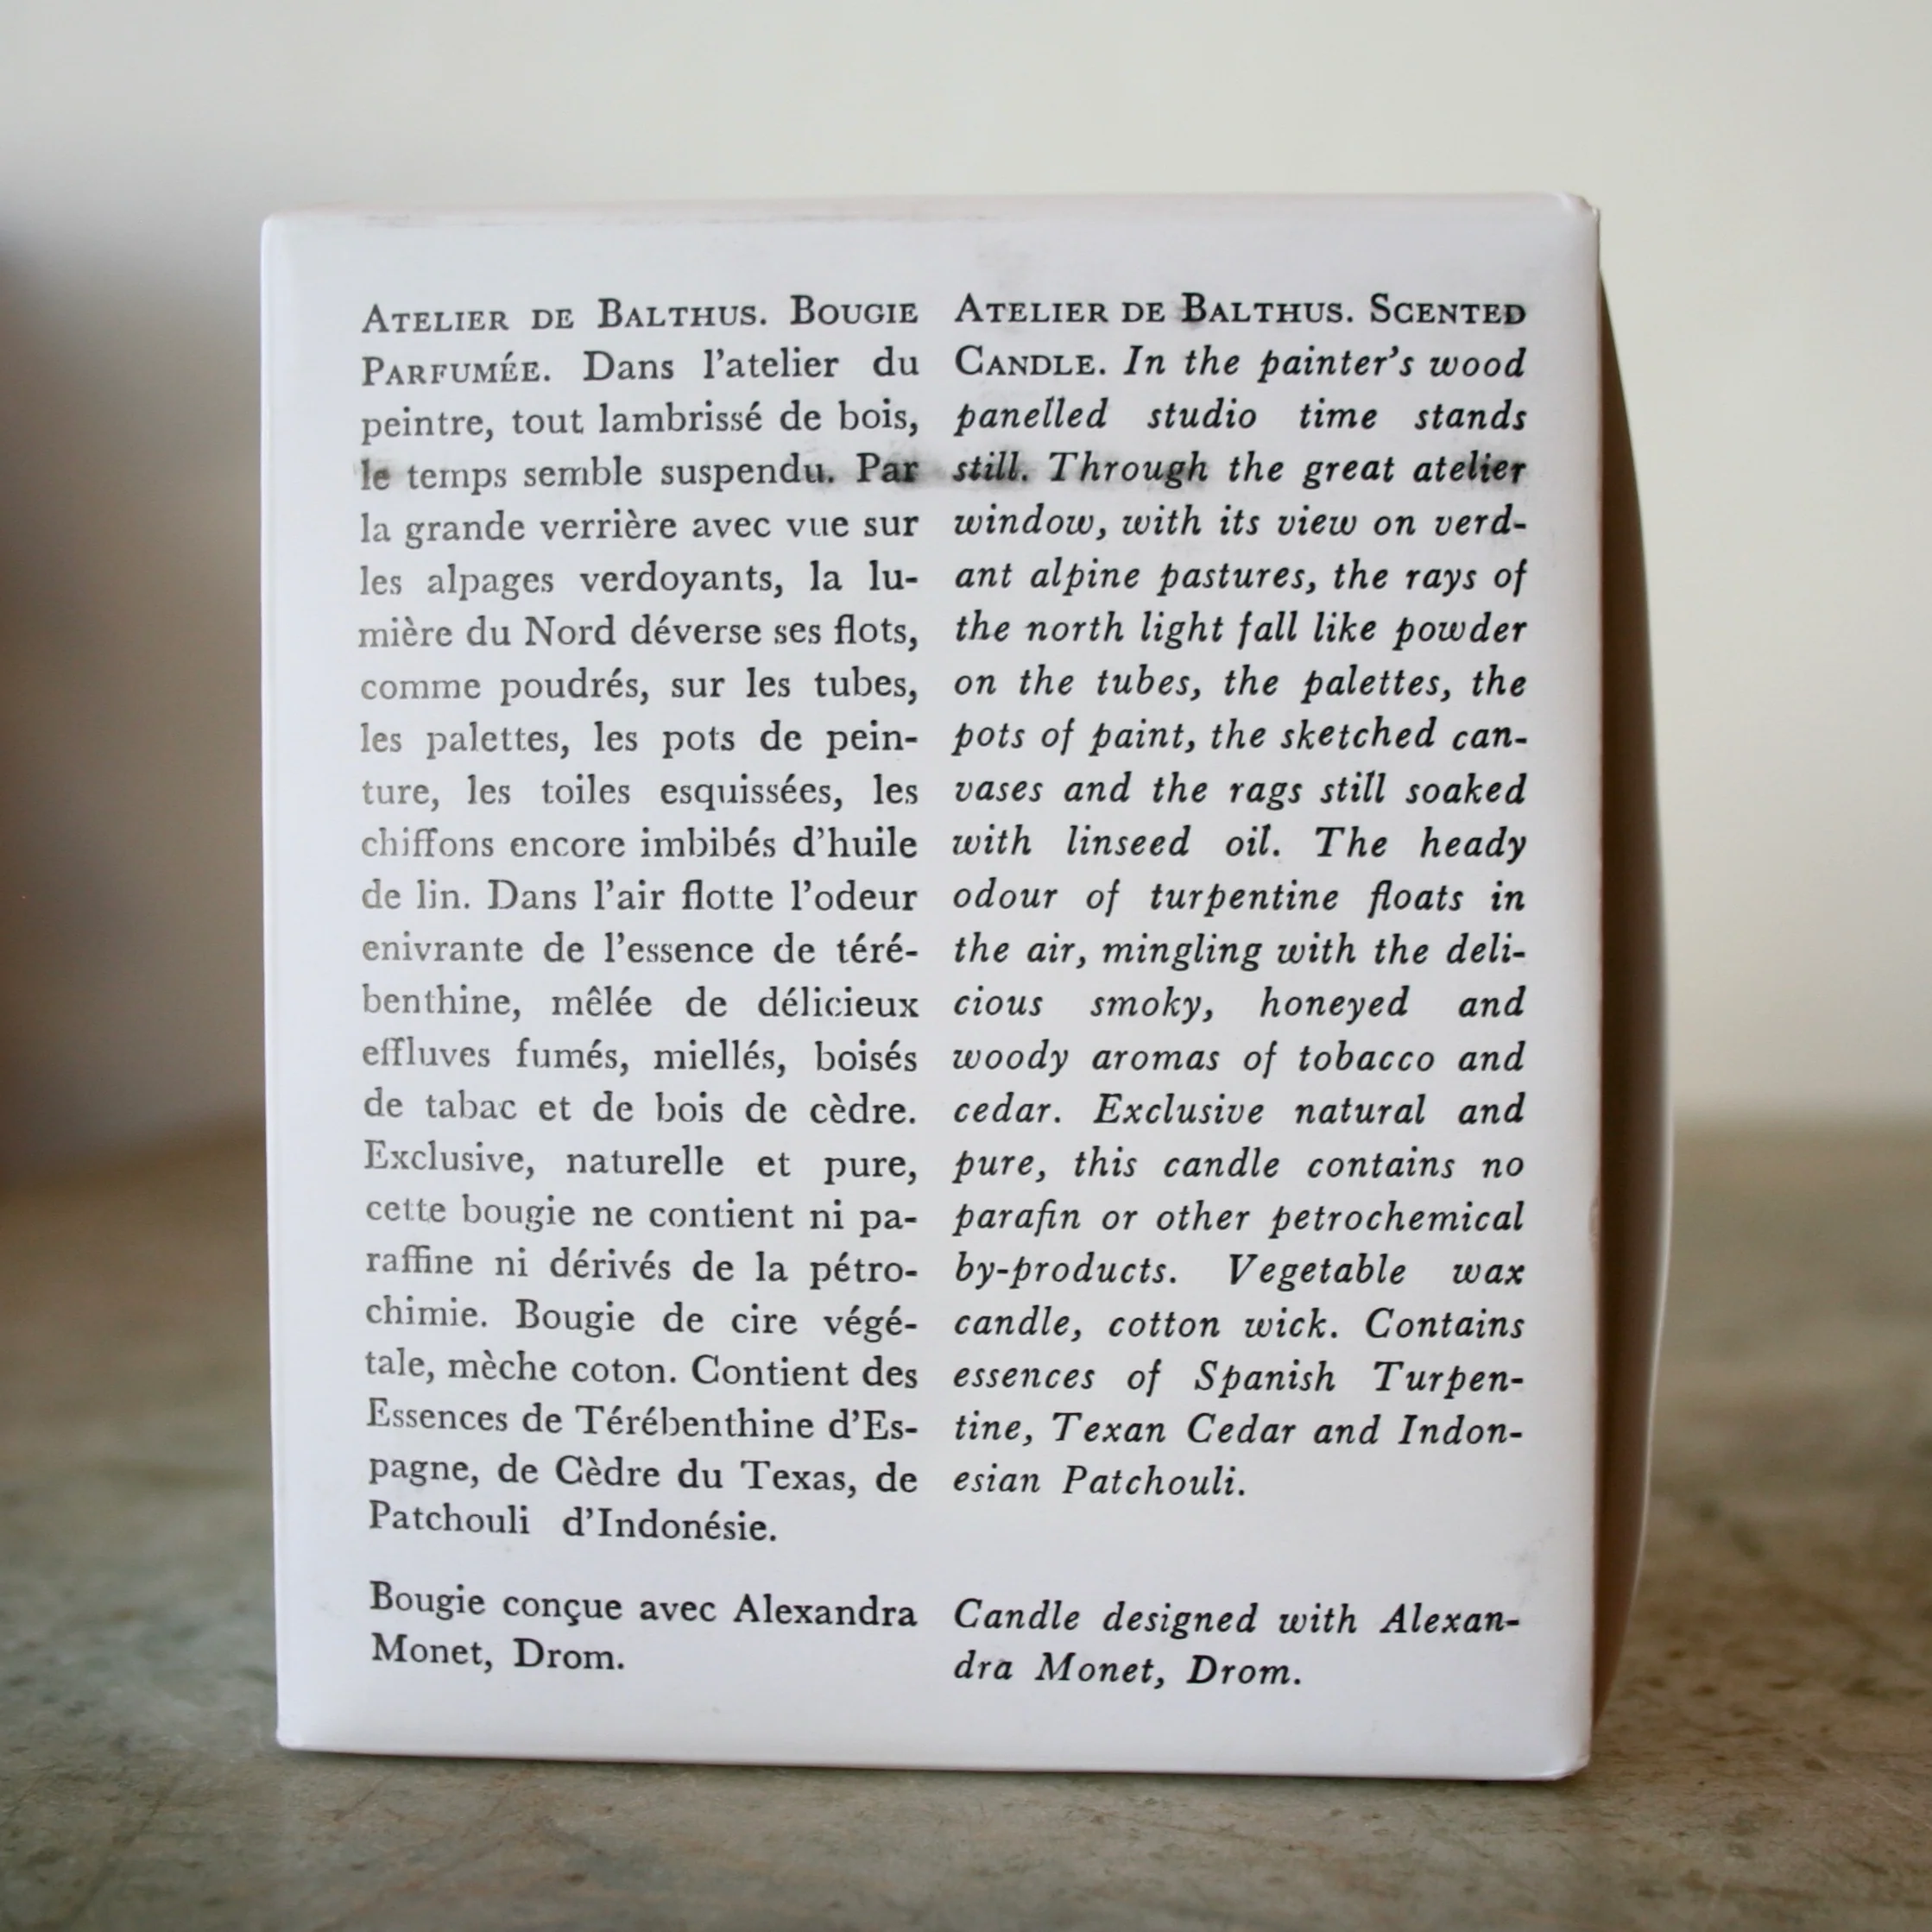 ATELIER DE BALTHUS. BOUGIE
PARFUMÉE. Dans l’atelier du
peintre, tout lambrissé de bois,
le temps semble suspendu. Par
la grande verrière avec vue sur
les alpages verdoyants, la lu-
mière du Nord déverse ses flots,
comme poudrés, sur les tubes,
les palettes, les pots de pein-
ture, les toiles esquissées, les
chiffons encore imbibés d’huile
de lin. Dans l’air flotte l’odeur
enivrante de l’essence de téré-
benthine, mêlée de délicieux
effluves fumés, miellés, boisés
de tabac et de bois de cèdre.
Exclusive, naturelle et pure,
cette bougie ne contient ni pa-
raffine ni dérivés de la pétro-
chimie. Bougie de cire végé-
tale, mèche coton. Contient des
Essences de Térébenthine d’Es-
pagne, de Cèdre du Texas, de
Patchouli d’Indonésie.
Bougie conçue avec Alexandra
Monet, Drom.
ATELIER DE BALTHUS. SCENTED
CANDLE. In the painter’s wood
panelled studio time stands
still. Through the great atelier
window, with its view on verd-
ant alpine pastures, the rays of
the north light fall like powder
on the tubes, the palettes, the
pots of paint, the sketched can-
vases and the rags still soaked
with linseed oil. The heady
odour of turpentine floats in
the air, mingling with the deli-
cious smoky, honeyed and
woody aromas of tobacco and
cedar. Exclusive natural and
pure, this candle contains no
parafin or other petrochemical
by-products. Vegetable wax
candle, cotton wick. Contains
essences of Spanish Turpen-
tine, Texan Cedar and Indon-
esian Patchouli.
Candle designed with Alexan-
dra Monet, Drom.